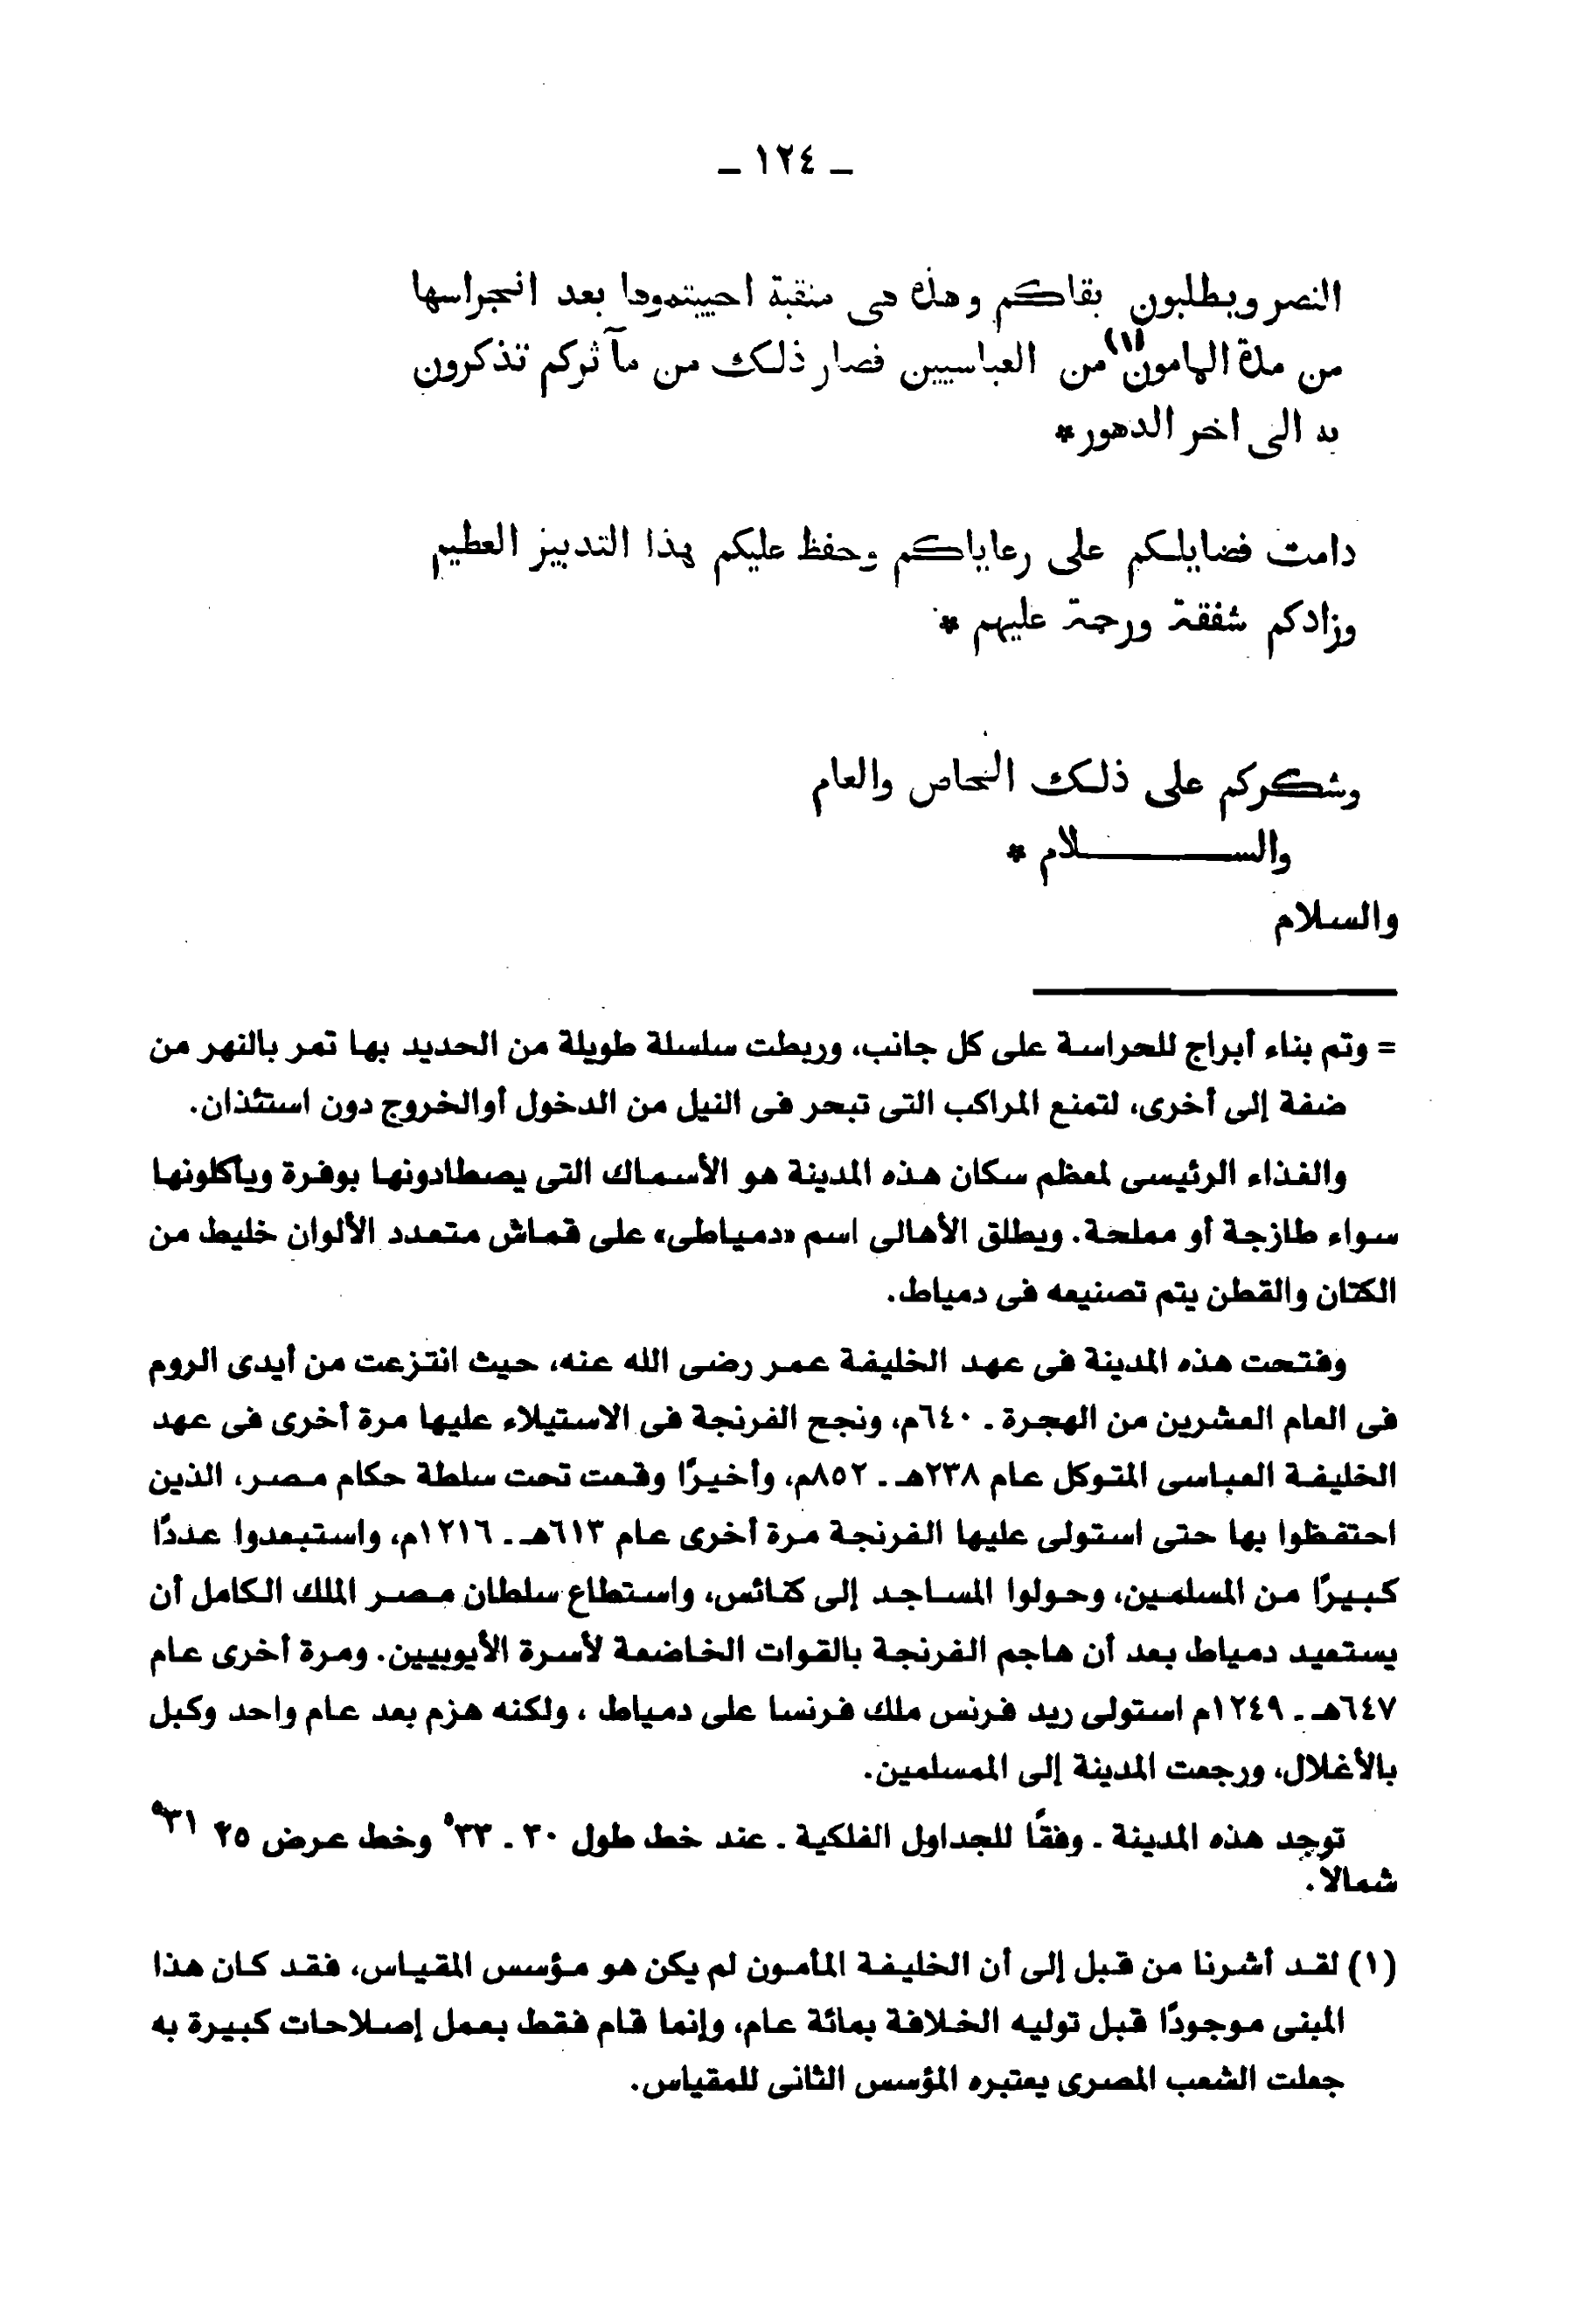 ـ ١٢٤ ـ
النصر ويطلبون بقاكم وهذه هى منقبة احييتموها بعد انجراسها
من مدة المامون(١) من العباسيين فصار ذلك من مآثركم تذكرون
به الى اخر الدهور*
دامت فضايلكم على رعاياكم وحفظ عليكم هذا التدبير العظيم
وزادكم شفقة ورحمة عليهم *
وشكركم على ذلك الخاص والعام
والســــــــلام *
والسلام
= وتم بناء أبراج للحراسة على كل جانب، وربطت سلسلة طويلة من الحديد بها تمر بالنهر من
ضفة إلى أخرى، لتمنع المراكب التى تبحر فى النيل من الدخول أوالخروج دون استئذان.
والغذاء الرئيسى لمعظم سكان هذه المدينة هو الأسماك التى يصطادونها بوفرة ويأكلونها
سواء طازجة أو مملحة. ويطلق الأهالى اسم «دمياطى» على قماش متعدد الألوان خليط من
الكتان والقطن يتم تصنيعه فى دمياط.
وفتحت هذه المدينة فى عهد الخليفة عمر رضى الله عنه، حيث انتزعت من أيدى الروم
فى العام العشرين من الهجرة ـ ٦٤٠م، ونجح الفرنجة فى الاستيلاء عليها مرة أخرى فى عهد
الخليفة العباسى المتوكل عام ٢٣٨هـ ـ ٨٥٢م، وأخيرًا وقعت تحت سلطة حكام مصر، الذين
احتفظوا بها حتى استولى عليها الفرنجة مرة أخرى عام ٦١٣هـ ـ ١٢١٦م، واستبعدوا عددًا
كبيرًا من المسلمين، وحولوا المساجد إلى كنائس، واستطاع سلطان مصر الملك الكامل أن
يستعيد دمياط بعد أن هاجم الفرنجة بالقوات الخاضعة لأسرة الأيوبيين. ومرة أخرى عام
٦٤٧هـ ـ ١٢٤٩م استولى ريد فرنس ملك فرنسا على دمياط ، ولكنه هزم بعد عام واحد وكبل
بالأغلال، ورجعت المدينة إلى المسلمين.
توجد هذه المدينة ـ وفقًا للجداول الفلكية ـ عند خط طول ٣٠ ـ ٣٣° وخط عرض ٢٥ ٣١°
شمالاً.
(١) لقد أشرنا من قبل إلى أن الخليفة المأمون لم يكن هو مؤسس المقياس، فقد كان هذا
المبنى موجودًا قبل توليه الخلافة بمائة عام، وإنما قام فقط بعمل إصلاحات كبيرة به
جعلت الشعب المصرى يعتبره المؤسس الثانى للمقياس.